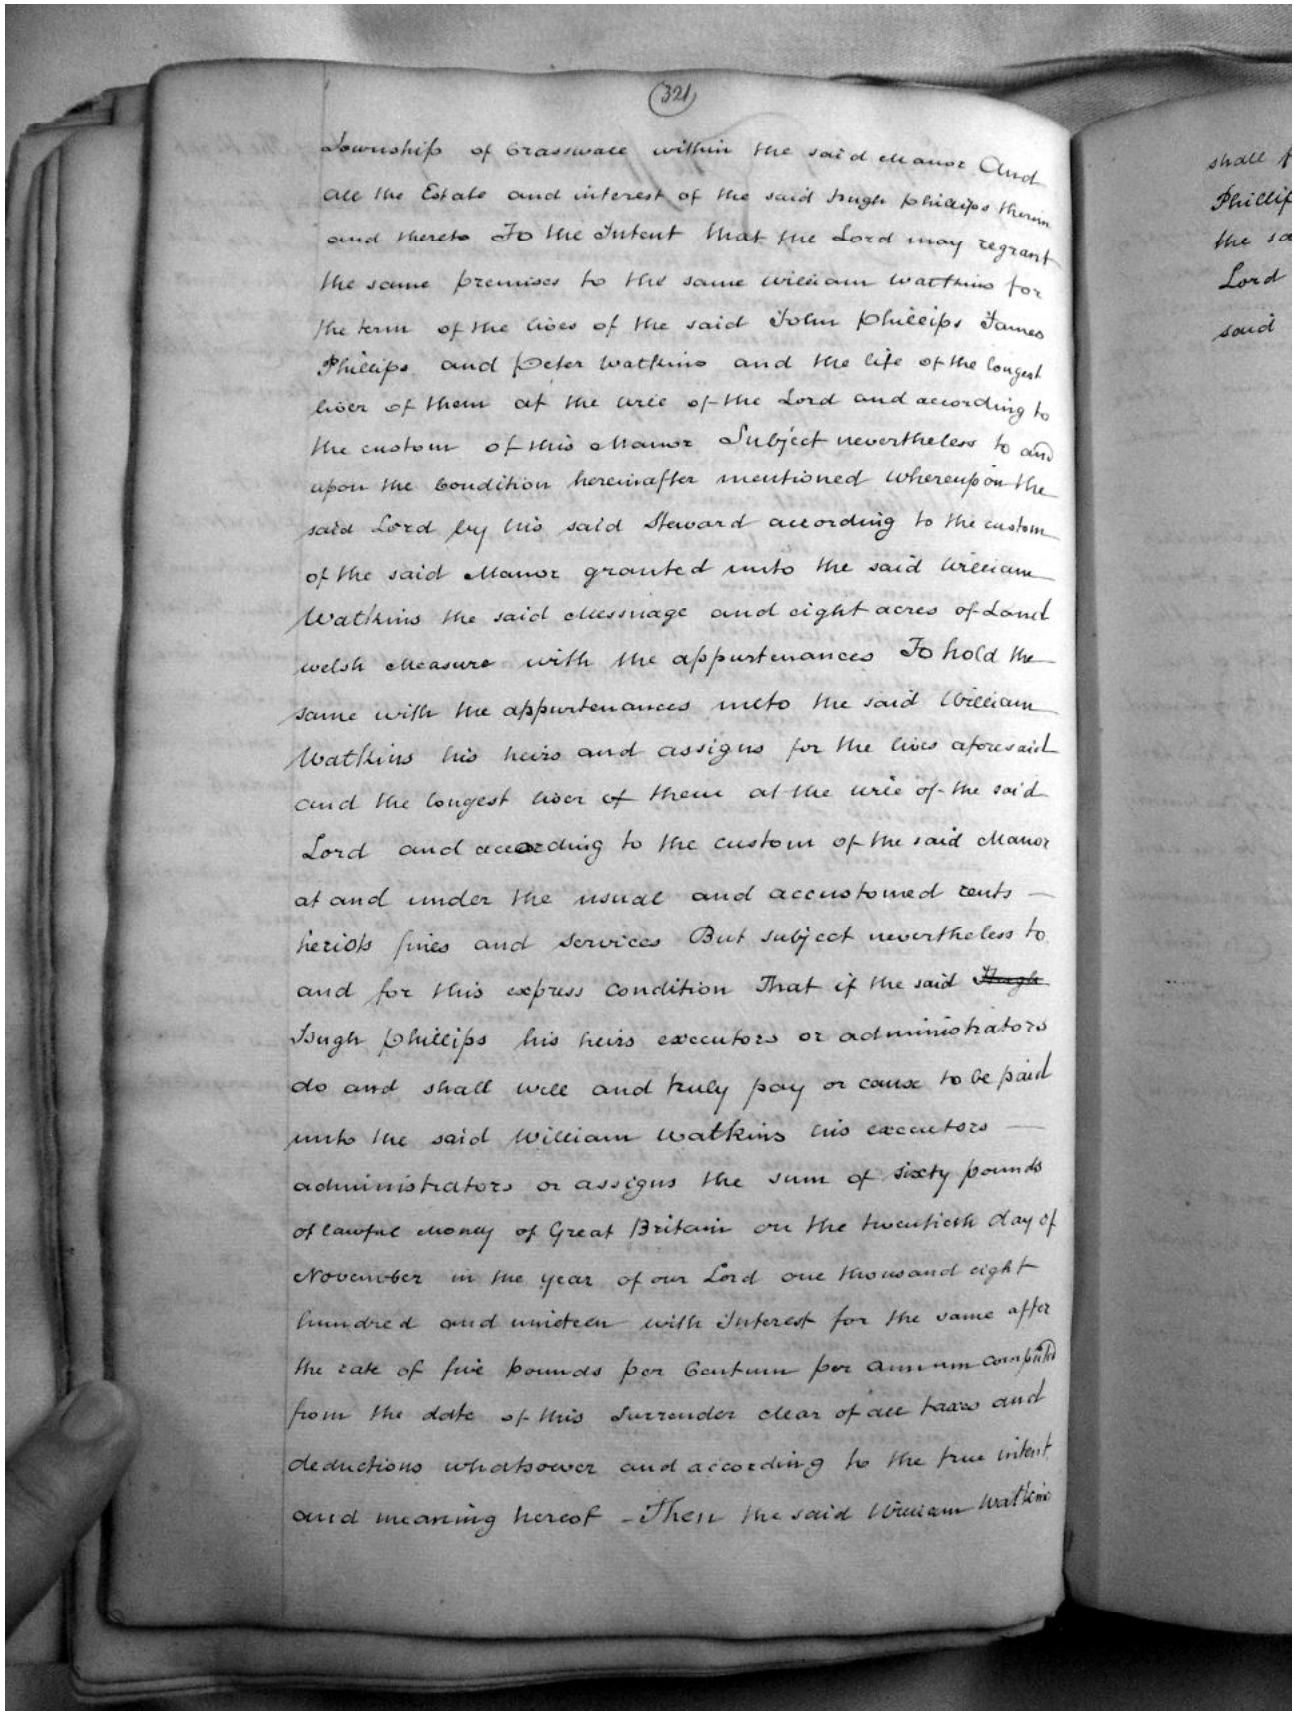 (321)
Township of Crasswall within the said Manor And
all the Estate and interest of the said Hugh Phillips therein
and thereto To the Intent that the Lord may regrant
the same premises to the same William Watkins for
the term of the lives of the said John Phillips James
Phillips and Peter Watkins and the life of the longest
liver of them at the will of the Lord and according to
the custom of this Manor Subject nevertheless to and
upon the Condition hereinafter mentioned Whereupon the
said Lord by his said Steward according to the custom
of the said Manor granted unto the said William
Watkins the said Messuage and eight acres of Land
welsh Measure with the appurtenances To hold the
same with the appurtenances unto the said William
Watkins his heirs and assigns for the lives aforesaid
and the longest liver of them at the will of the said
Lord and according to the custom of the said Manor
at and under the usual and accustomed rents —
heriots fines and services But subject nevertheless to
and for this express condition That if the said Hugh
Hugh Phillips his heirs executors or administrators
do and shall well and truly pay or cause to be paid
unto the said William Watkins his executors —
administrators or assigns the sum of sixty pounds
of lawful Money of Great Britain on the twentieth day of
November in the year of our Lord one thousand eight
hundred and nineteen with Interest for the same after
the rate of five pounds per Centum per annum computed
from the date of this Surrender clear of all taxes and
deductions whatsoever and according to the true intent
and meaning hereof - Then the said William Watkins
shall
Phillip
the sa
Lord
said